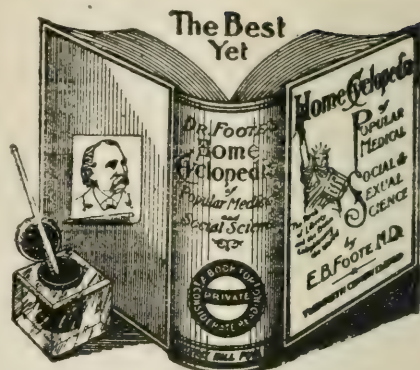 The Best
Yet
Dr. Foote's
Home
Cyclopedia
of
Popular Medical
and
Social Science
A BOOK FOR
PRIVATE
CONSIDERATE READING
Home Cyclopedia
of
Popular
Medical
Social &
Sexual
Science
by
E.B. Foote, M.D.
TWENTIETH CENTURY EDITION